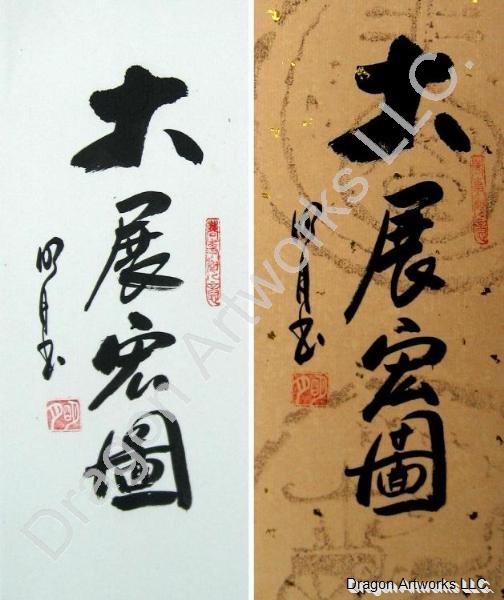 大展宏圖
明月書
大展宏圖
明月書
Dragon Artworks LLC.
Dragon Artworks LLC.